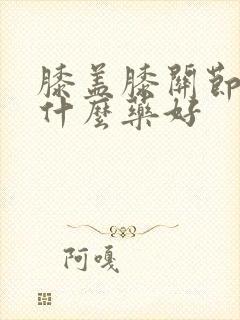 膝盖膝關節
什麼藥好
阿嘎